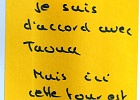 je suis
d'accord avec
Taoua
Mais ici
cette tour est